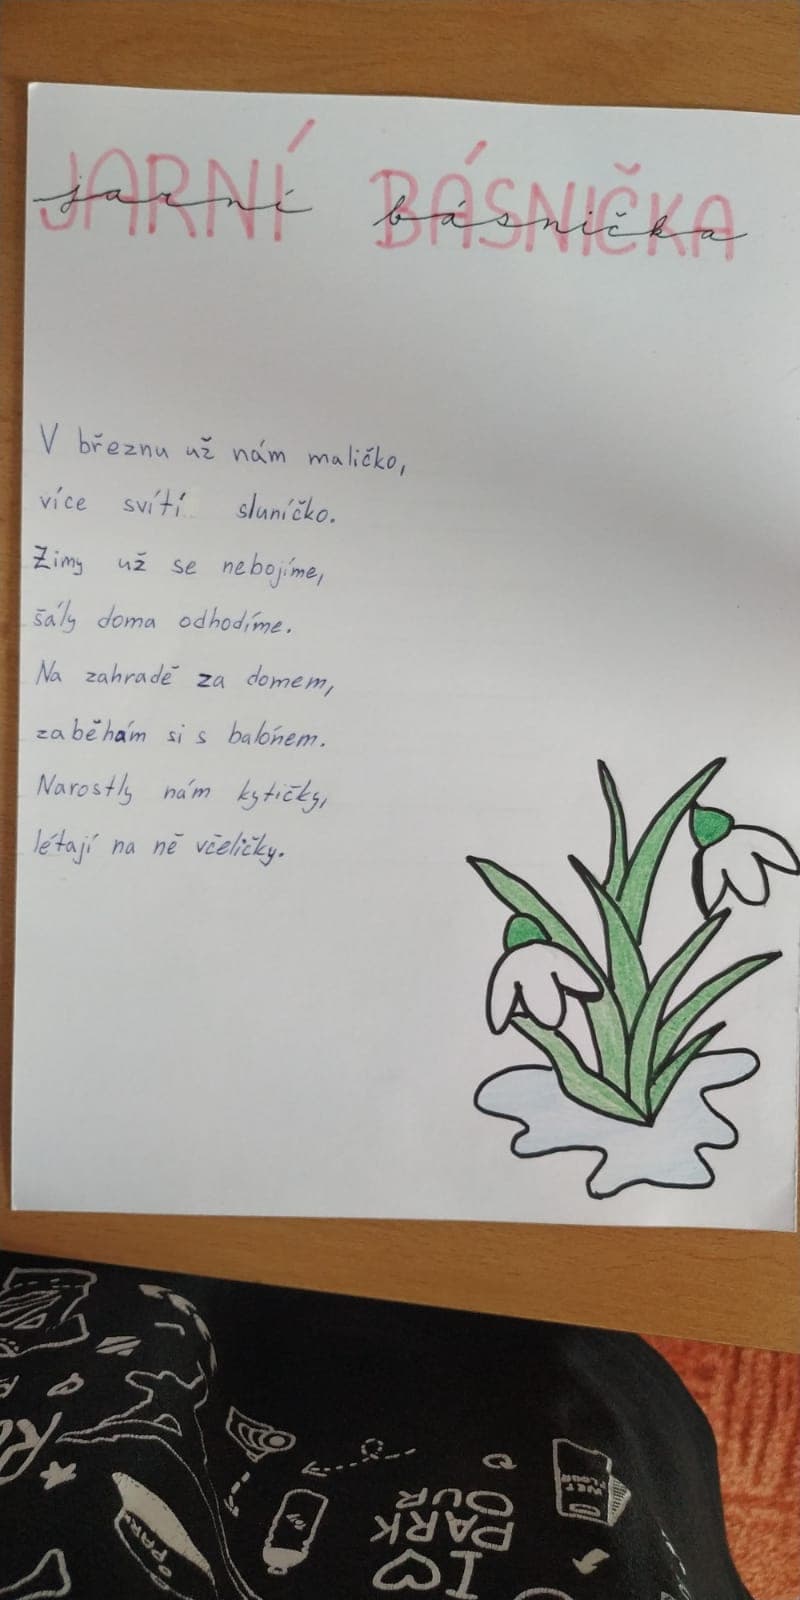 JARNÍ BÁSNIČKA
jarní básnička
V březnu už nám maličko,
více svítí sluníčko.
Zimy už se nebojíme,
šály doma odhodíme.
Na zahradě za domem,
zaběhám si s balónem.
Narostly nám kytičky,
létají na ně včeličky.
PARK
I
PARK
OUR